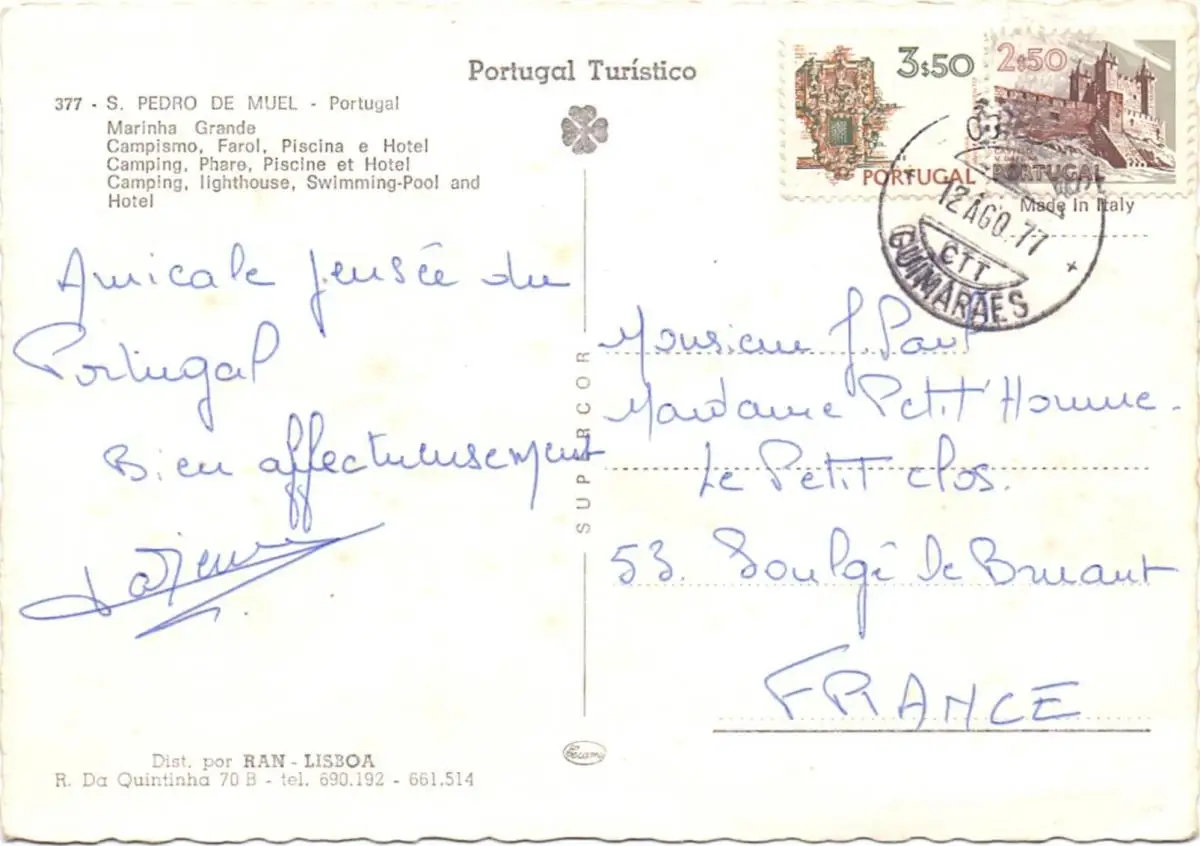 Portugal Turístico
377 - S. PEDRO DE MUEL - Portugal
Marinha Grande
Campismo, Farol, Piscina e Hotel
Camping, Phare, Piscine et Hotel
Camping, lighthouse, Swimming-Pool and
Hotel
3$50
PORTUGAL
2$50
PORTUGAL
Made in Italy
12 AGO. 77
CTT
GUIMARÃES
Amicale pensée du
Portugal
Bien affectueusement
SUPERCOR
Monsieur J. Paul
Madame Petit'Homme.
Le Petit clos.
53. Soulgé le Bruant
FRANCE
Dist. por RAN - LISBOA
R. Da Quintinha 70 B - tel. 690.192 - 661.514